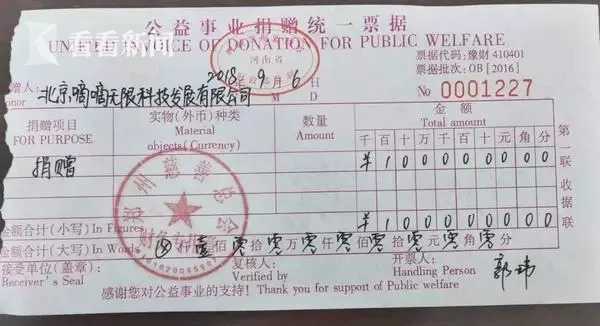 看看新闻
公益事业捐赠统一票据
UNIFIED INVOICE OF DONATION FOR PUBLIC WELFARE
河南省
票据代码:豫财 410401
票据批次:OB[2016]
赠人: 北京嘀嘀无限科技发展有限公司 2018 9 6 日
onor Y M D No 0001227
捐赠项目 实物(外币)种类 数量 金额
FOR PURPOSE Material objects(Currency) Amount Total amount
千 百 十 万 千 百 十 元 角 分
捐赠 ¥ 1 0 0 0 0 0 0 0 0
第一联 收据联
金额合计(小写)In Figures ¥ 1 0 0 0 0 0 0 0 0
金额合计(大写)In Words ⊗ 仟 壹 佰 零 拾 零 万 零 仟 零 佰 零 拾 零 元 零 角 零 分
郑州慈善总会
接受单位(盖章): 复核人: 开票人: 郭玮
Receiver's Seal Verified by Handling Person
感谢您对公益事业的支持! Thank you for support of Public welfare